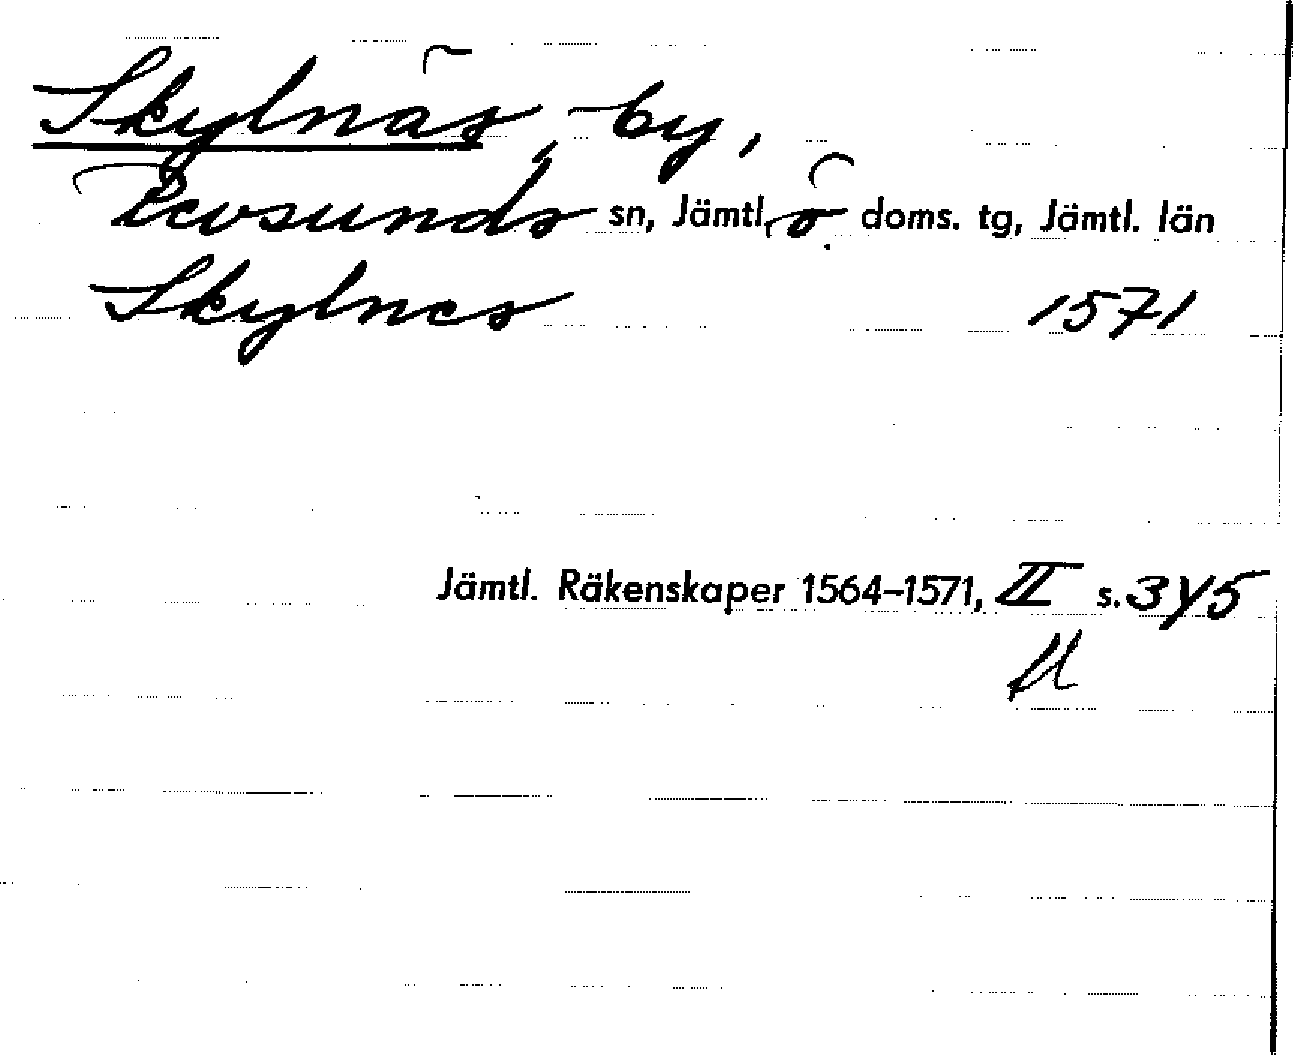 Skylnäs, by,
Revsunds sn, Jämtl. ö doms. tg, Jämtl. län
Skylnes 1571
Jämtl. Räkenskaper 1564–1571, II s. 345